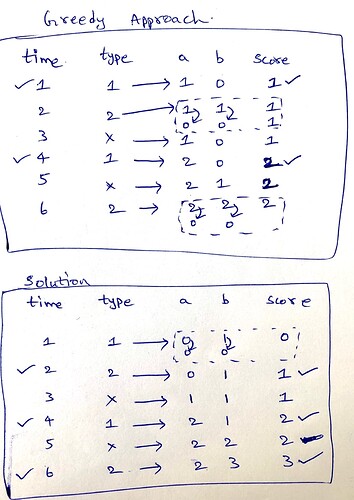 Greedy Approach.
time. type a b score
✓ 1 1 → 1 0 1 ✓
2 2 → 1 1 1
0 0 1
3 x → 1 0 1
✓ 4 1 → 2 0 2 ✓
5 x → 2 1 2
6 2 → 2 2 2
0 0
Solution
time type a b score
1 1 → 0 1 0
0 0
✓ 2 2 → 0 1 1 ✓
3 x → 1 1 1
✓ 4 1 → 2 1 2 ✓
5 x → 2 2 2
✓ 6 2 → 2 3 3 ✓